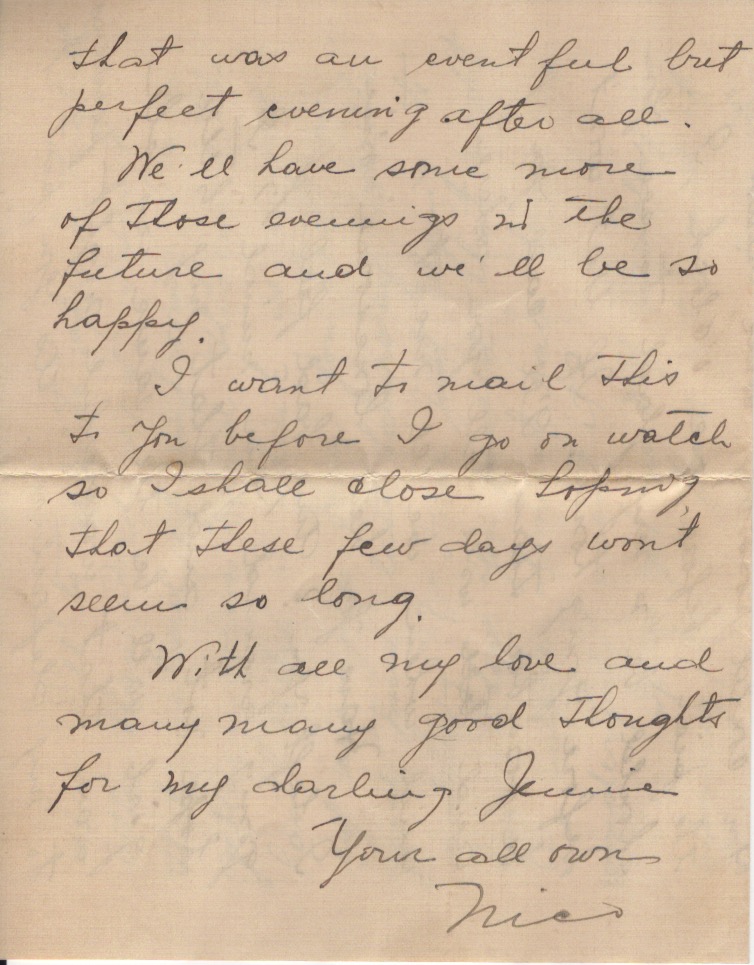 that was an eventful but
perfect evening after all.
We'll have some more
of those evenings in the
future and we'll be so
happy.
I want to mail this
to you before I go on watch
so I shall close hoping
that these few days won't
seem so long.
With all my love and
many many good thoughts
for my darling Jennie
Your all own
Nico